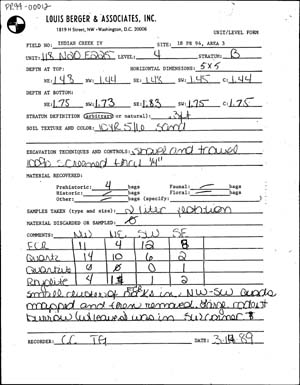 PR99-00012
LOUIS BERGER & ASSOCIATES, INC.
1819 H Street, NW · Washington, D.C. 20006
UNIT/LEVEL FORM
FIELD NO: INDIAN CREEK IV SITE: 18 PR 94, AREA 3
UNIT: 118 N20 E225 LEVEL: 4 STRATUM: B
DEPTH AT TOP: HORIZONTAL DIMENSIONS: 5x5
NE: 1.43 SW: 1.44 C: 1.44
DEPTH AT BOTTOM:
NE: 1.75 1.73 SE: 1.83 1.75 C: 1.75
STRATUM DEFINITION (arbitrary or natural): .3ft
SOIL TEXTURE AND COLOR: 10YR 5/6 sand
EXCAVATION TECHNIQUES AND CONTROLS: shovel and trowel
100% screened thru 1/4"
MATERIAL RECOVERED:
Prehistoric: 4 bags Faunal: bags
Historic: bags Floral: bags
Other: bags (specify:
SAMPLES TAKEN (type and size): 2 liter flotation
MATERIAL DISCARDED OR SAMPLED: ø
COMMENTS: NW NE SW SE
FCR 11 4 12 8
Quartz 14 10 6 2
Quartzite 0 1
Rhyolite 4 2
small cluster of FCR rocks in NW-SW quads
mapped and then removed.
burrow was in SW corner
RECORDER: CC TG DATE: 89